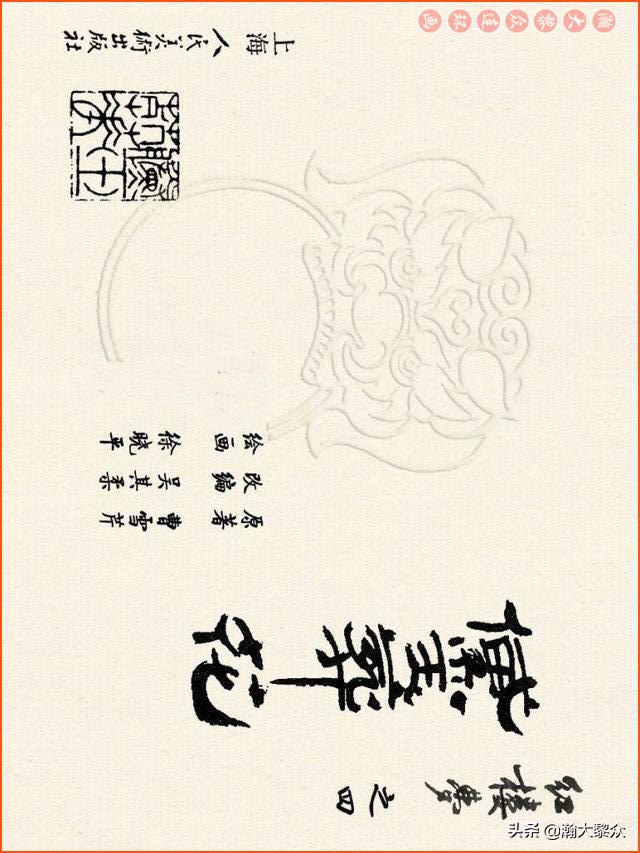 红楼梦之四
黛玉葬花
原著 曹雪芹
改编 吴其柔
绘画 徐晓平
上海人民美術出版社
瀚大黎众连环画
头条 @瀚大黎众